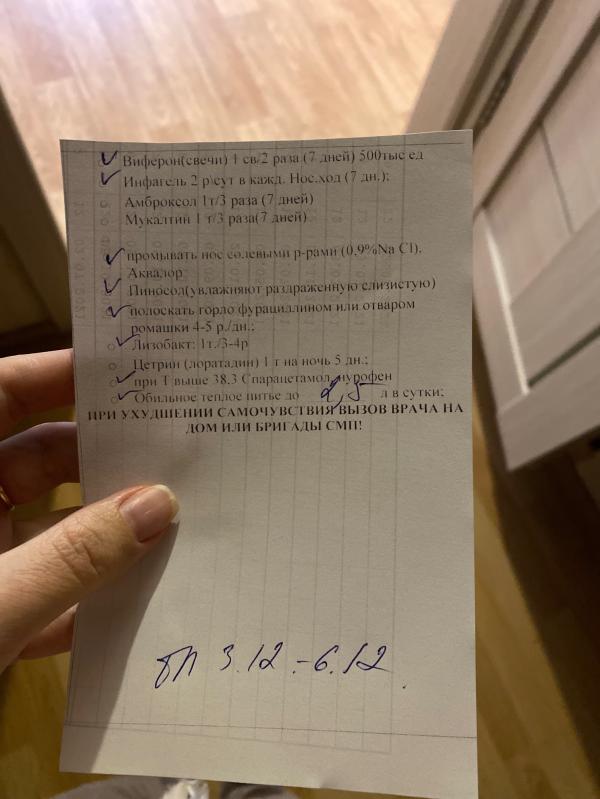 Виферон(свечи) 1 св/2 раза (7 дней) 500тыс ед
Инфагель 2 р\сут в кажд. Нос.ход (7 дн.);
Амброксол 1т/3 раза (7 дней)
Мукалтин 1 т/3 раза(7 дней)
промывать нос солевыми р-рами (0,9%Na Cl),
Аквалор
Пиносол(увлажняют раздраженную слизистую)
полоскать горло фурациллином или отваром
ромашки 4-5 р./дн.;
Лизобакт: 1т./3-4р
Цетрин (лоратадин) 1 т на ночь 5 дн.;
при Т выше 38.3 Cпарацетамол, нурофен
Обильное теплое питье до 2,5 л в сутки;
ПРИ УХУДШЕНИИ САМОЧУВСТВИЯ ВЫЗОВ ВРАЧА НА
ДОМ ИЛИ БРИГАДЫ СМП!
бл 3.12.-6.12.